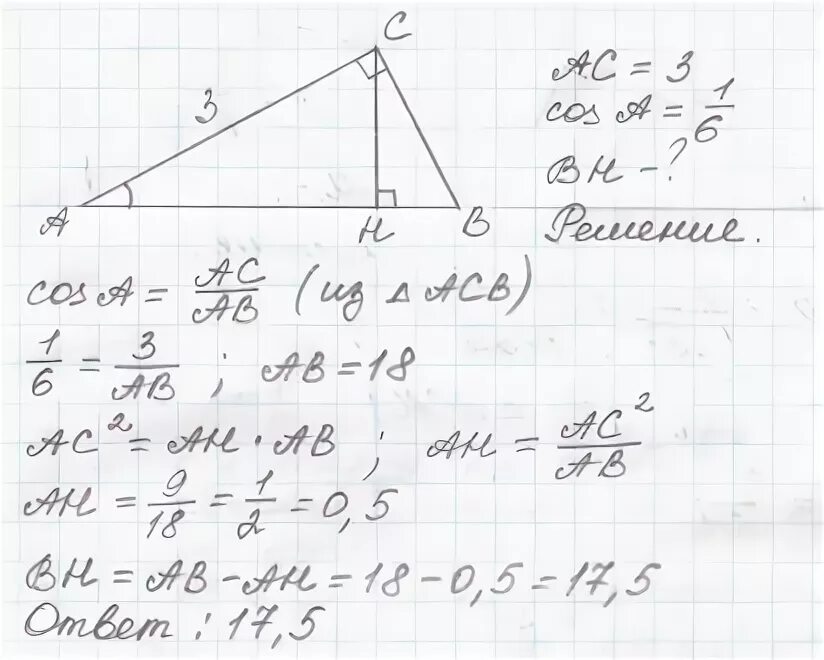 C
3
A
H
B
AC = 3
cos A = 1/6
BH - ?
Решение.
cos A = AC/AB (из △ ACB)
1/6 = 3/AB ; AB = 18
AC² = AH · AB ; AH = AC²/AB
AH = 9/18 = 1/2 = 0,5
BH = AB - AH = 18 - 0,5 = 17,5
Ответ : 17,5